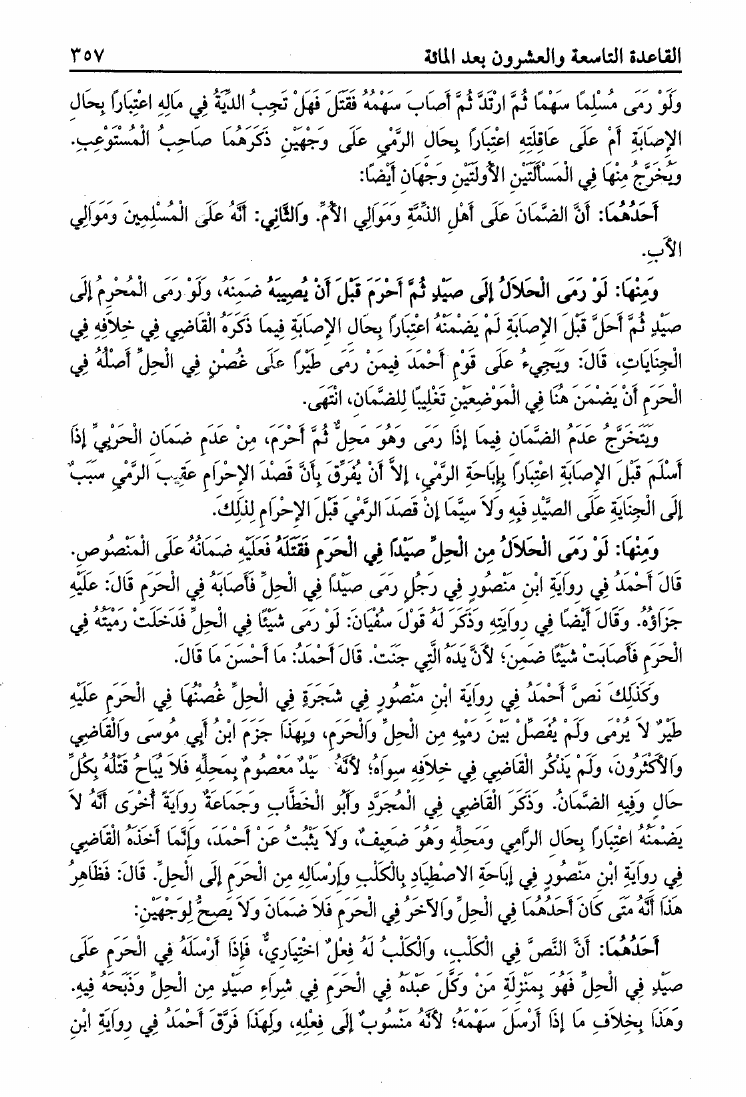 القاعدة التاسعة والعشرون بعد المائة ٣٥٧
وَلَوْ رَمَى مُسْلِمًا سَهْمًا ثُمَّ ارْتَدَّ ثُمَّ أَصَابَ سَهْمُهُ فَقَتَلَ فَهَلْ تَجِبُ الدِّيَةُ فِي مَالِهِ اعْتِبَارًا بِحَالِ
الإِصَابَةِ أَمْ عَلَى عَاقِلَتِهِ اعْتِبَارًا بِحَالِ الرَّمْيِ عَلَى وَجْهَيْنِ ذَكَرَهُمَا صَاحِبُ الْمُسْتَوْعِبِ.
وَيُخَرَّجُ مِنْهَا فِي الْمَسْأَلَتَيْنِ الأُولَتَيْنِ وَجْهَانِ أَيْضًا:
أَحَدُهُمَا: أَنَّ الضَّمَانَ عَلَى أَهْلِ الذِّمَّةِ وَمَوَالِي الأُمِّ. وَالثَّانِي: أَنَّهُ عَلَى الْمُسْلِمِينَ وَمَوَالِي
الأَبِ.
وَمِنْهَا: لَوْ رَمَى الْحَلاَلُ إِلَى صَيْدٍ ثُمَّ أَحْرَمَ قَبْلَ أَنْ يُصِيبَهُ ضَمِنَهُ، وَلَوْ رَمَى الْمُحْرِمُ إِلَى
صَيْدٍ ثُمَّ أَحَلَّ قَبْلَ الإِصَابَةِ لَمْ يَضْمَنْهُ اعْتِبَارًا بِحَالِ الإِصَابَةِ فِيمَا ذَكَرَهُ الْقَاضِي فِي خِلاَفِهِ فِي
الْجِنَايَاتِ، قَالَ: وَيَجِيءُ عَلَى قَوْمِ أَحْمَدَ فِيمَنْ رَمَى طَيْرًا عَلَى غُصْنٍ فِي الْحِلِّ أَصْلُهُ فِي
الْحَرَمِ أَنْ يَضْمَنَ هُنَا فِي الْمَوْضِعَيْنِ تَغْلِيبًا لِلضَّمَانِ، انْتَهَى.
وَيَتَخَرَّجُ عَدَمُ الضَّمَانِ فِيمَا إِذَا رَمَى وَهُوَ مَحِلٌّ ثُمَّ أَحْرَمَ، مِنْ عَدَمِ ضَمَانِ الْحَرْبِيِّ إِذَا
أَسْلَمَ قَبْلَ الإِصَابَةِ اعْتِبَارًا بِإِبَاحَةِ الرَّمْيِ، إِلاَّ أَنْ يُفَرِّقَ بِأَنَّ قَصْدَ الإِحْرَامِ عَقِيبَ الرَّمْيِ سَبَبٌ
إِلَى الْجِنَايَةِ عَلَى الصَّيْدِ فِيهِ وَلاَ سِيَّمَا إِنْ قَصَدَ الرَّمْيَ قَبْلَ الإِحْرَامِ لِذَلِكَ.
وَمِنْهَا: لَوْ رَمَى الْحَلاَلُ مِنَ الْحِلِّ صَيْدًا فِي الْحَرَمِ فَقَتَلَهُ فَعَلَيْهِ ضَمَانُهُ عَلَى الْمَنْصُوصِ.
قَالَ أَحْمَدُ فِي رِوَايَةِ ابْنِ مَنْصُورٍ فِي رَجُلٍ رَمَى صَيْدًا فِي الْحِلِّ فَأَصَابَهُ فِي الْحَرَمِ قَالَ: عَلَيْهِ
جَزَاؤُهُ. وَقَالَ أَيْضًا فِي رِوَايَتِهِ وَذَكَرَ لَهُ قَوْلَ سُفْيَانَ: لَوْ رَمَى شَيْئًا فِي الْحِلِّ فَدَخَلَتْ رَمْيَتُهُ فِي
الْحَرَمِ فَأَصَابَتْ شَيْئًا ضَمِنَ؛ لأَنَّ يَدَهُ الَّتِي جَنَتْ. قَالَ أَحْمَدُ: مَا أَحْسَنَ مَا قَالَ.
وَكَذَلِكَ نَصَّ أَحْمَدُ فِي رِوَايَةِ ابْنِ مَنْصُورٍ فِي شَجَرَةٍ فِي الْحِلِّ غُصْنُهَا فِي الْحَرَمِ عَلَيْهِ
طَيْرٌ لاَ يُرْمَى وَلَمْ يُفَصِّلْ بَيْنَ رَمْيِهِ مِنَ الْحِلِّ وَالْحَرَمِ، وَبِهَذَا جَزَمَ ابْنُ أَبِي مُوسَى وَالْقَاضِي
وَالأَكْثَرُونَ، وَلَمْ يَذْكُرِ الْقَاضِي فِي خِلاَفِهِ سِوَاهُ؛ لأَنَّهُ مَعْصُومٌ بِمَحِلِّهِ فَلاَ يُبَاحُ قَتْلُهُ بِكُلِّ
حَالٍ وَفِيهِ الضَّمَانُ. وَذَكَرَ الْقَاضِي فِي الْمُجَرَّدِ وَأَبُو الْخَطَّابِ وَجَمَاعَةٌ رِوَايَةً أُخْرَى أَنَّهُ لاَ
يَضْمَنُهُ اعْتِبَارًا بِحَالِ الرَّامِي وَمَحِلِّهِ وَهُوَ ضَعِيفٌ، وَلاَ يَثْبُتُ عَنْ أَحْمَدَ، وَإِنَّمَا أَخَذَهُ الْقَاضِي
فِي رِوَايَةِ ابْنِ مَنْصُورٍ فِي إِبَاحَةِ الاصْطِيَادِ بِالْكَلْبِ وَإِرْسَالِهِ مِنَ الْحَرَمِ إِلَى الْحِلِّ. قَالَ: فَظَاهِرُ
هَذَا أَنَّهُ مَتَى كَانَ أَحَدُهُمَا فِي الْحِلِّ وَالآخَرُ فِي الْحَرَمِ فَلاَ ضَمَانَ وَلاَ يَصِحُّ لِوَجْهَيْنِ:
أَحَدُهُمَا: أَنَّ النَّصَّ فِي الْكَلْبِ، وَالْكَلْبُ لَهُ فِعْلٌ اخْتِيَارِيٌّ، فَإِذَا أَرْسَلَهُ فِي الْحَرَمِ عَلَى
صَيْدٍ فِي الْحِلِّ فَهُوَ بِمَنْزِلَةِ مَنْ وَكَّلَ عَبْدَهُ فِي الْحَرَمِ فِي شِرَاءِ صَيْدٍ مِنَ الْحِلِّ وَذَبَحَهُ فِيهِ.
وَهَذَا بِخِلاَفِ مَا إِذَا أَرْسَلَ سَهْمَهُ؛ لأَنَّهُ مَنْسُوبٌ إِلَى فِعْلِهِ، وَلِهَذَا فَرَّقَ أَحْمَدُ فِي رِوَايَةِ ابْنِ